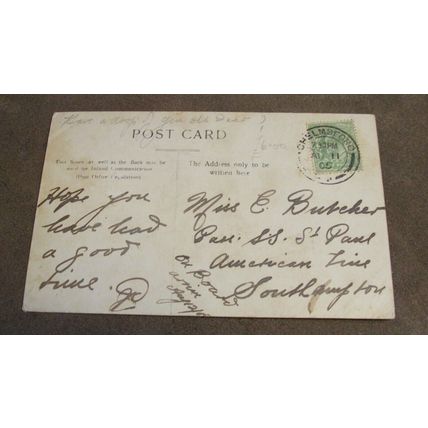 Have a drop of gin old dear?
6.00
POST CARD
This Space as well as the Back may be
used for Inland Communication
(Post Office Regulation)
The Address only to be
written here
CHELMSFORD
7.30 PM
AU 11
05
Hope you
have had
a good
time.
Miss E. Butcher
Pass. SS. St Paul
American Line
Southampton
On Board